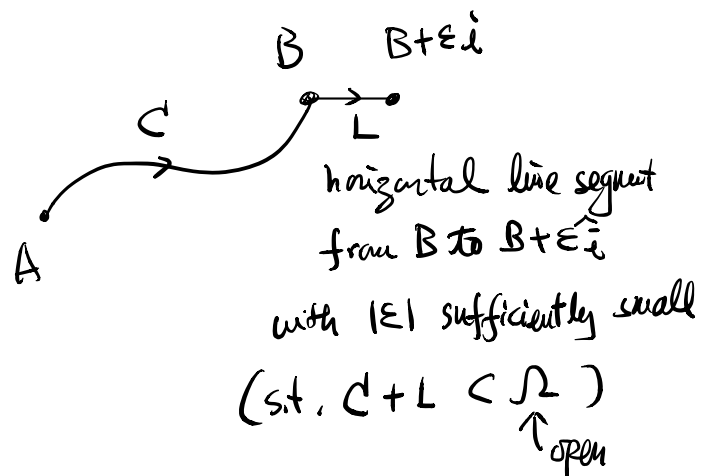 B B+εî
C
L
A
horizontal line segment
from B to B+εî
with |ε| sufficiently small
(s.t. C+L ⊂ Ω)
↑ open